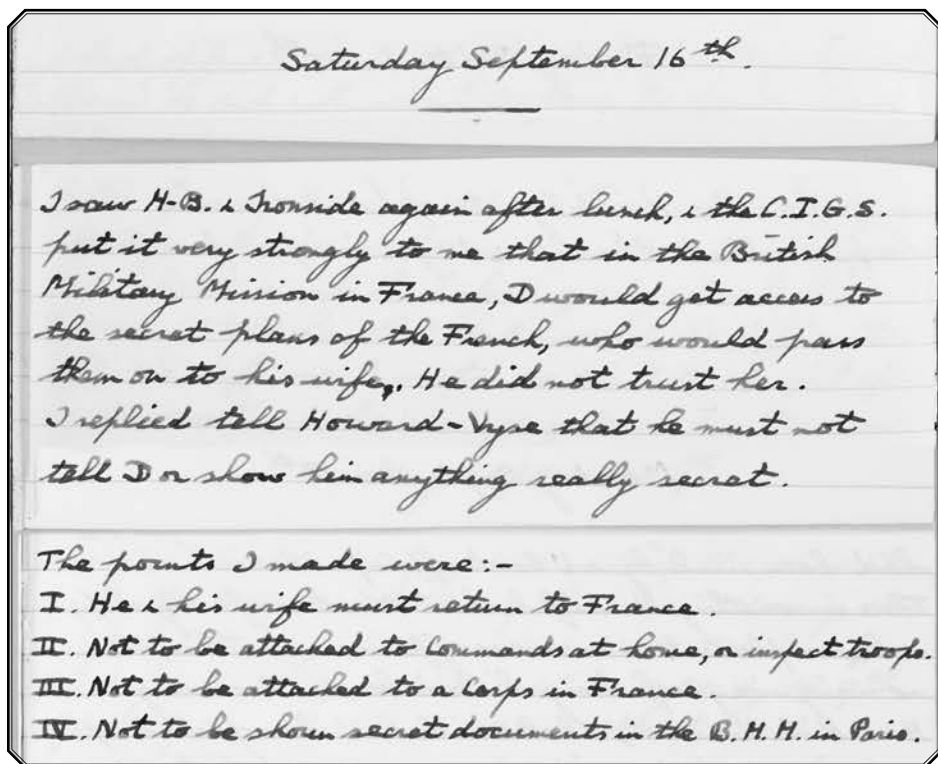 Saturday September 16th.
I saw H-B. & Ironside again after lunch, & the C.I.G.S.
put it very strongly to me that in the British
Military Mission in France, D would get access to
the secret plans of the French, who would pass
them on to his wife,. He did not trust her.
I replied tell Howard-Vyse that he must not
tell D or show him anything really secret.
The points I made were:-
I. He & his wife must return to France.
II. Not to be attached to Commands at home, or inspect troops.
III. Not to be attached to a Corps in France.
IV. Not to be shown secret documents in the B.M.M. in Paris.